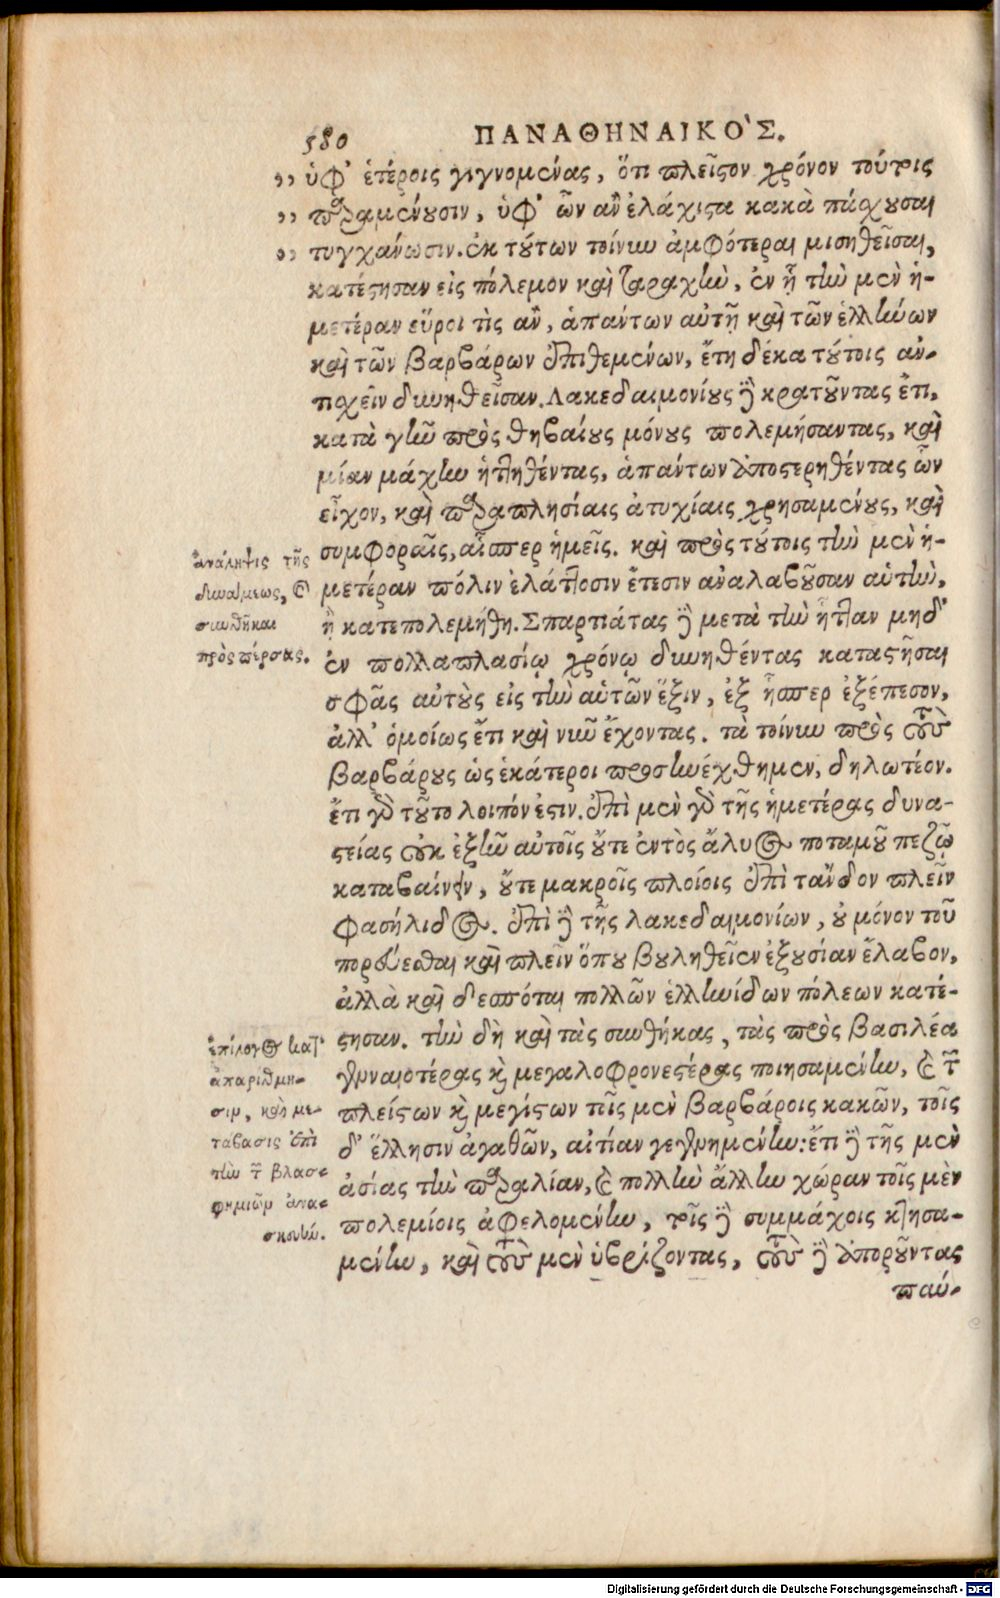 580 ΠΑΝΑΘΗΝΑΙΚΟ'Σ.
„ ὑφ' ἑτέροις γιγνομένας, ὅτι πλεῖστον χρόνον τούτοις
„ παραμένουσιν, ὑφ' ὧν ἂν ἐλάχιστα κακὰ πάσχουσαι
„ τυγχάνωσιν. ἐκ τούτων τοίνυν ἀμφότεραι μισηθεῖσαι,
κατέστησαν εἰς πόλεμον καὶ ταραχὴν, ἐν ᾗ τὴν μὲν ἡ-
μετέραν εὕροι τὶς ἂν, ἁπάντων αὐτῇ καὶ τῶν ἑλλήνων
καὶ τῶν βαρβάρων ἐπιθεμένων, ἔτη δέκα τούτοις ἀν-
τισχεῖν δυνηθεῖσαν. Λακεδαιμονίους δὲ κρατοῦντας ἔτι,
κατὰ γῆν πρὸς θηβαίους μόνους πολεμήσαντας, καὶ
μίαν μάχην ἡττηθέντας, ἁπάντων ἀποστερηθέντας ὧν
εἶχον, καὶ παραπλησίαις ἀτυχίαις χρησαμένους, καὶ
συμφοραῖς, αἷσπερ ἡμεῖς. καὶ πρὸς τούτοις τὴν μὲν ἡ-
μετέραν πόλιν ἐλάττοσιν ἔτεσιν ἀναλαβοῦσαν αὑτὴν,
ἢ κατεπολεμήθη. Σπαρτιάτας δὲ μετὰ τὴν ἧτταν μηδ'
ἐν πολλαπλασίῳ χρόνῳ δυνηθέντας καταστῆσαι
σφᾶς αὐτοὺς εἰς τὴν αὑτῶν ἕξιν, ἐξ ἧσπερ ἐξέπεσον,
ἀλλ' ὁμοίως ἔτι καὶ νῦν ἔχοντας. τὰ τοίνυν πρὸς τοὺς
βαρβάρους ὡς ἑκάτεροι προσηνέχθημεν, δηλωτέον.
ἔτι γὰρ τοῦτο λοιπόν ἐστιν. ἐπὶ μὲν γὰρ τῆς ἡμετέρας δυνα-
στείας οὐκ ἐξῆν αὐτοῖς οὔτε ἐντὸς ἅλυος ποταμοῦ πεζῷ
καταβαίνειν, οὔτε μακροῖς πλοίοις ἐπὶ τάνδον πλεῖν
φασήλιδος. ἐπὶ δὲ τῆς λακεδαιμονίων, οὐ μόνον τοῦ
πορεύεσθαι καὶ πλεῖν ὅπου βουληθεῖεν ἐξουσίαν ἔλαβον,
ἀλλὰ καὶ δεσπόται πολλῶν ἑλληνίδων πόλεων κατέ-
στησαν. τὴν δὴ καὶ τὰς συνθήκας, τὰς πρὸς βασιλέα
γενναιοτέρας καὶ μεγαλοφρονεστέρας ποιησαμένην, καὶ τῶν
πλείστων καὶ μεγίστων τοῖς μὲν βαρβάροις κακῶν, τοῖς
δ' ἕλλησιν ἀγαθῶν, αἰτίαν γεγενημένην: ἔτι δὲ τῆς μὲν
ἀσίας τὴν παραλίαν, καὶ πολλὴν ἄλλην χώραν τοῖς μὲν
πολεμίοις ἀφελομένην, τοῖς δὲ συμμάχοις κτησα-
μένην, καὶ τοὺς μὲν ὑβρίζοντας, τοὺς δὲ ἀποροῦντας
παύ-
ἀνάληψις τῆς
δυνάμεως, καὶ
συνθῆκαι
πρὸς πέρσας.
ἐπίλογος κατ'
ἀπαρίθμη-
σιν, καὶ με-
τάβασις ἐπὶ
τὴν τῶν βλασ-
φημιῶν ἀνα-
σκευήν.
Digitalisierung gefördert durch die Deutsche Forschungsgemeinschaft - DFG